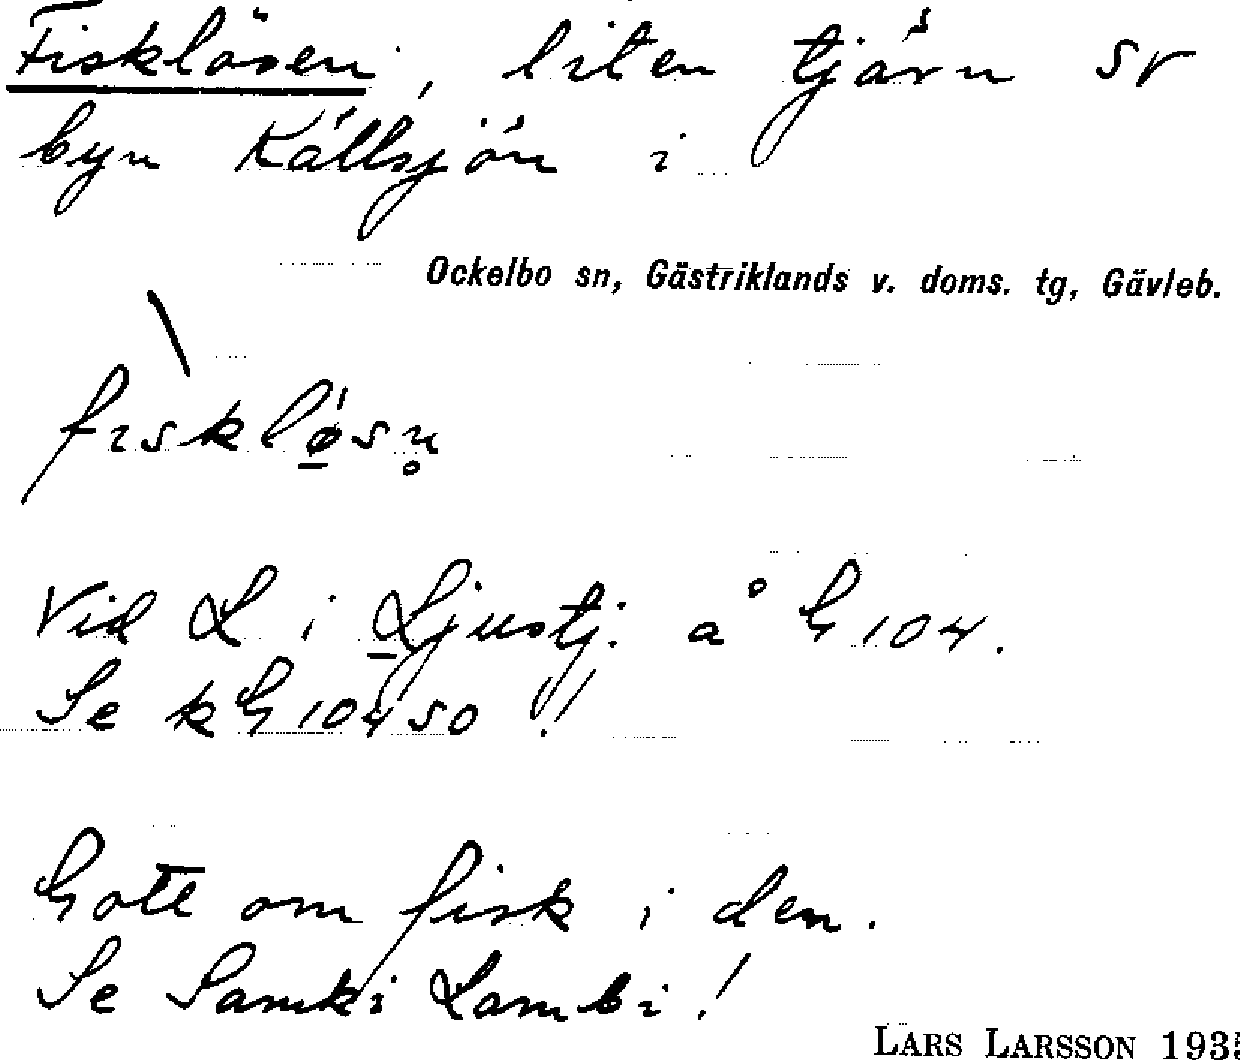 Fisklösen, liten tjärn sv
byn Källsjön i
Ockelbo sn, Gästriklands v. doms. tg, Gävleb.
fısklø̱sn̥
Vid L i Ljustj. å G 104.
Se k G 10450!
Gott om fisk i den.
Se Lambi!
LARS LARSSON 1935